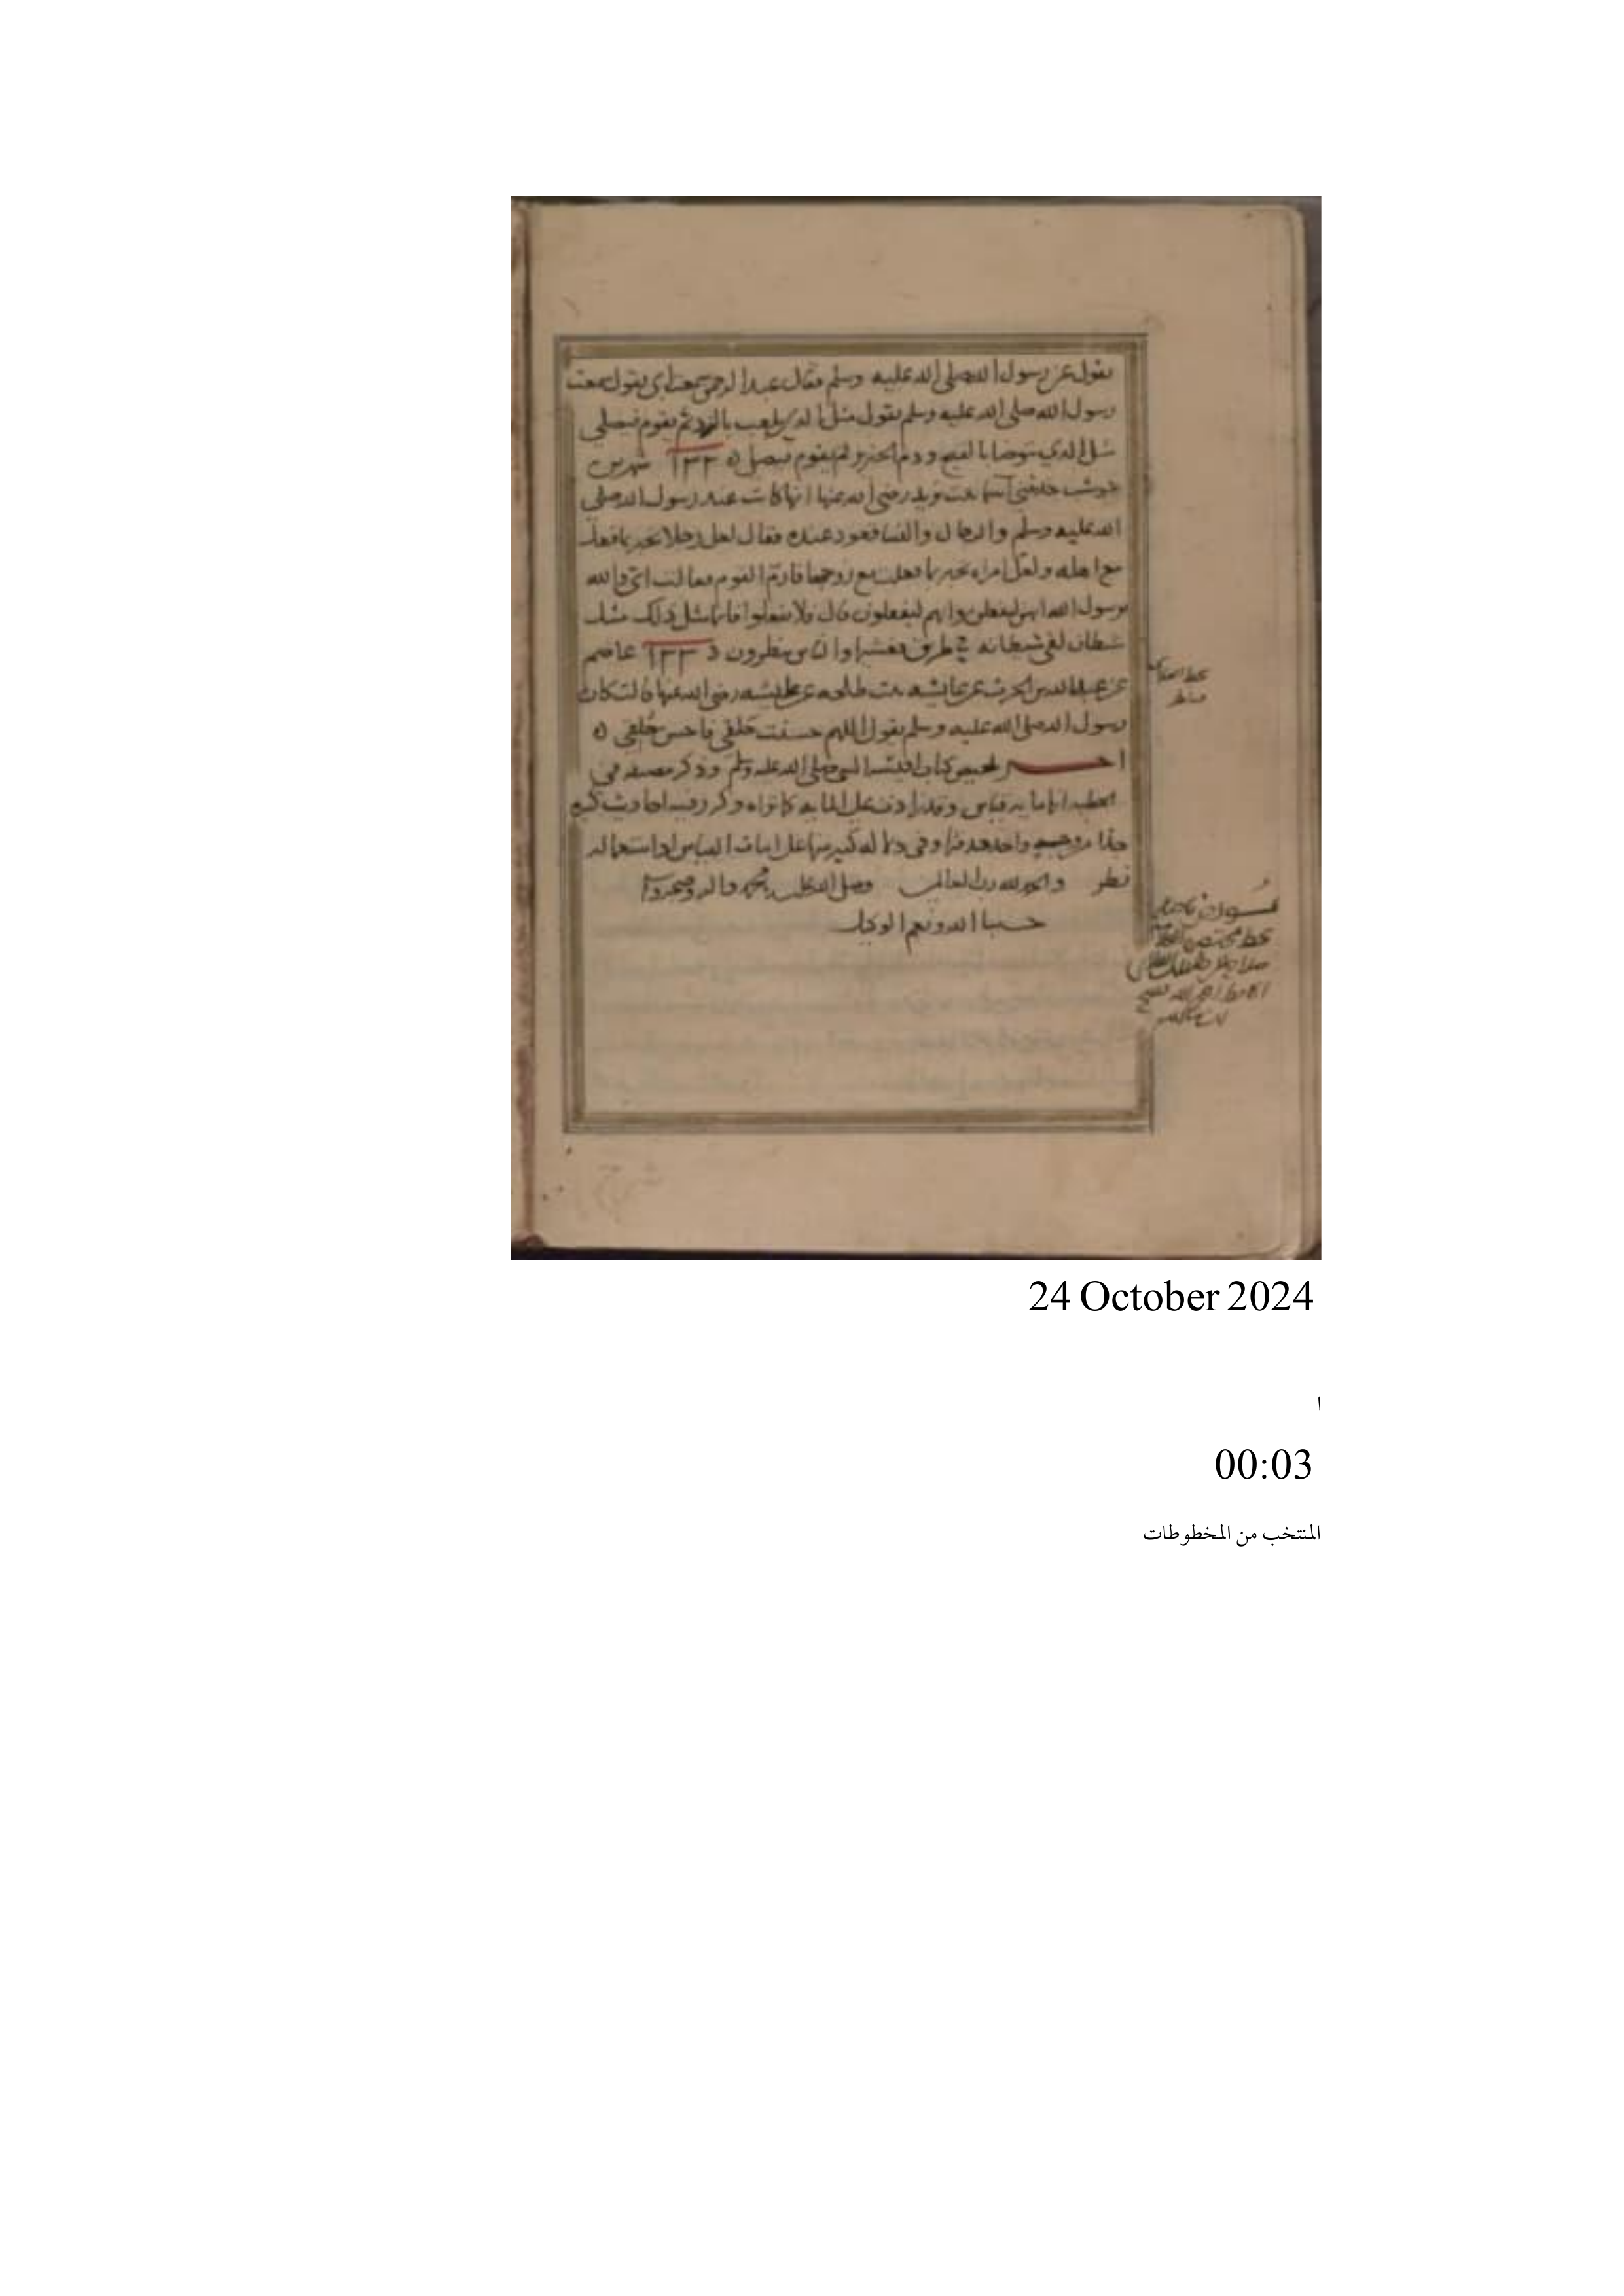 يقول عن رسول الله صلى الله عليه وسلم فقال عبد الرحمن سمعت ابي يقول سمعت
رسول الله صلى الله عليه وسلم يقول مثل الذي يلعب بالنرد ثم يقوم فيصلي
مثل الذي يتوضا بالقيح ودم الخنزير ثم يقوم فيصلي ١٣٢ شهر بن
حوشب حدثتني اسما بنت يزيد رضي الله عنها انها كانت عند رسول الله صلى
الله عليه وسلم والرجال والنسا قعود عنده فقال لعل رجلا يخبر بما فعل
مع اهله ولعل امراه تخبر بما فعلت مع زوجها فارم القوم فقالت اي والله
يرسول الله انهن ليفعلن وانهم ليفعلون قال فلا تفعلوا فانما مثل ذلك مثل
شيطان لقي شيطانه في طريق فغشيها والناس ينظرون ١٣٣ عاصم
عن عبد الله بن الحرث عن عايشه بنت طلحه عن عايشه رضي الله عنها قالت كان
رسول الله صلى الله عليه وسلم يقول اللهم حسنت خلقي فاحسن خلقي
اخر تلخيص كتاب اقيسه النبي صلى الله عليه وسلم وذكر مصنفه في
الخطبه انها مايه قياس وقد زادت على المايه كما تراه وكرر فيه احاديث كثيره
واحد وفي دلاله كثير منها على اثبات القياس او استعماله
نظر والحمد لله رب العالمين وصلى الله على محمد واله وصحبه
حسبنا الله ونعم الوكيل
بخط
24 October 2024
ا
00:03
المنتخب من المخطوطات